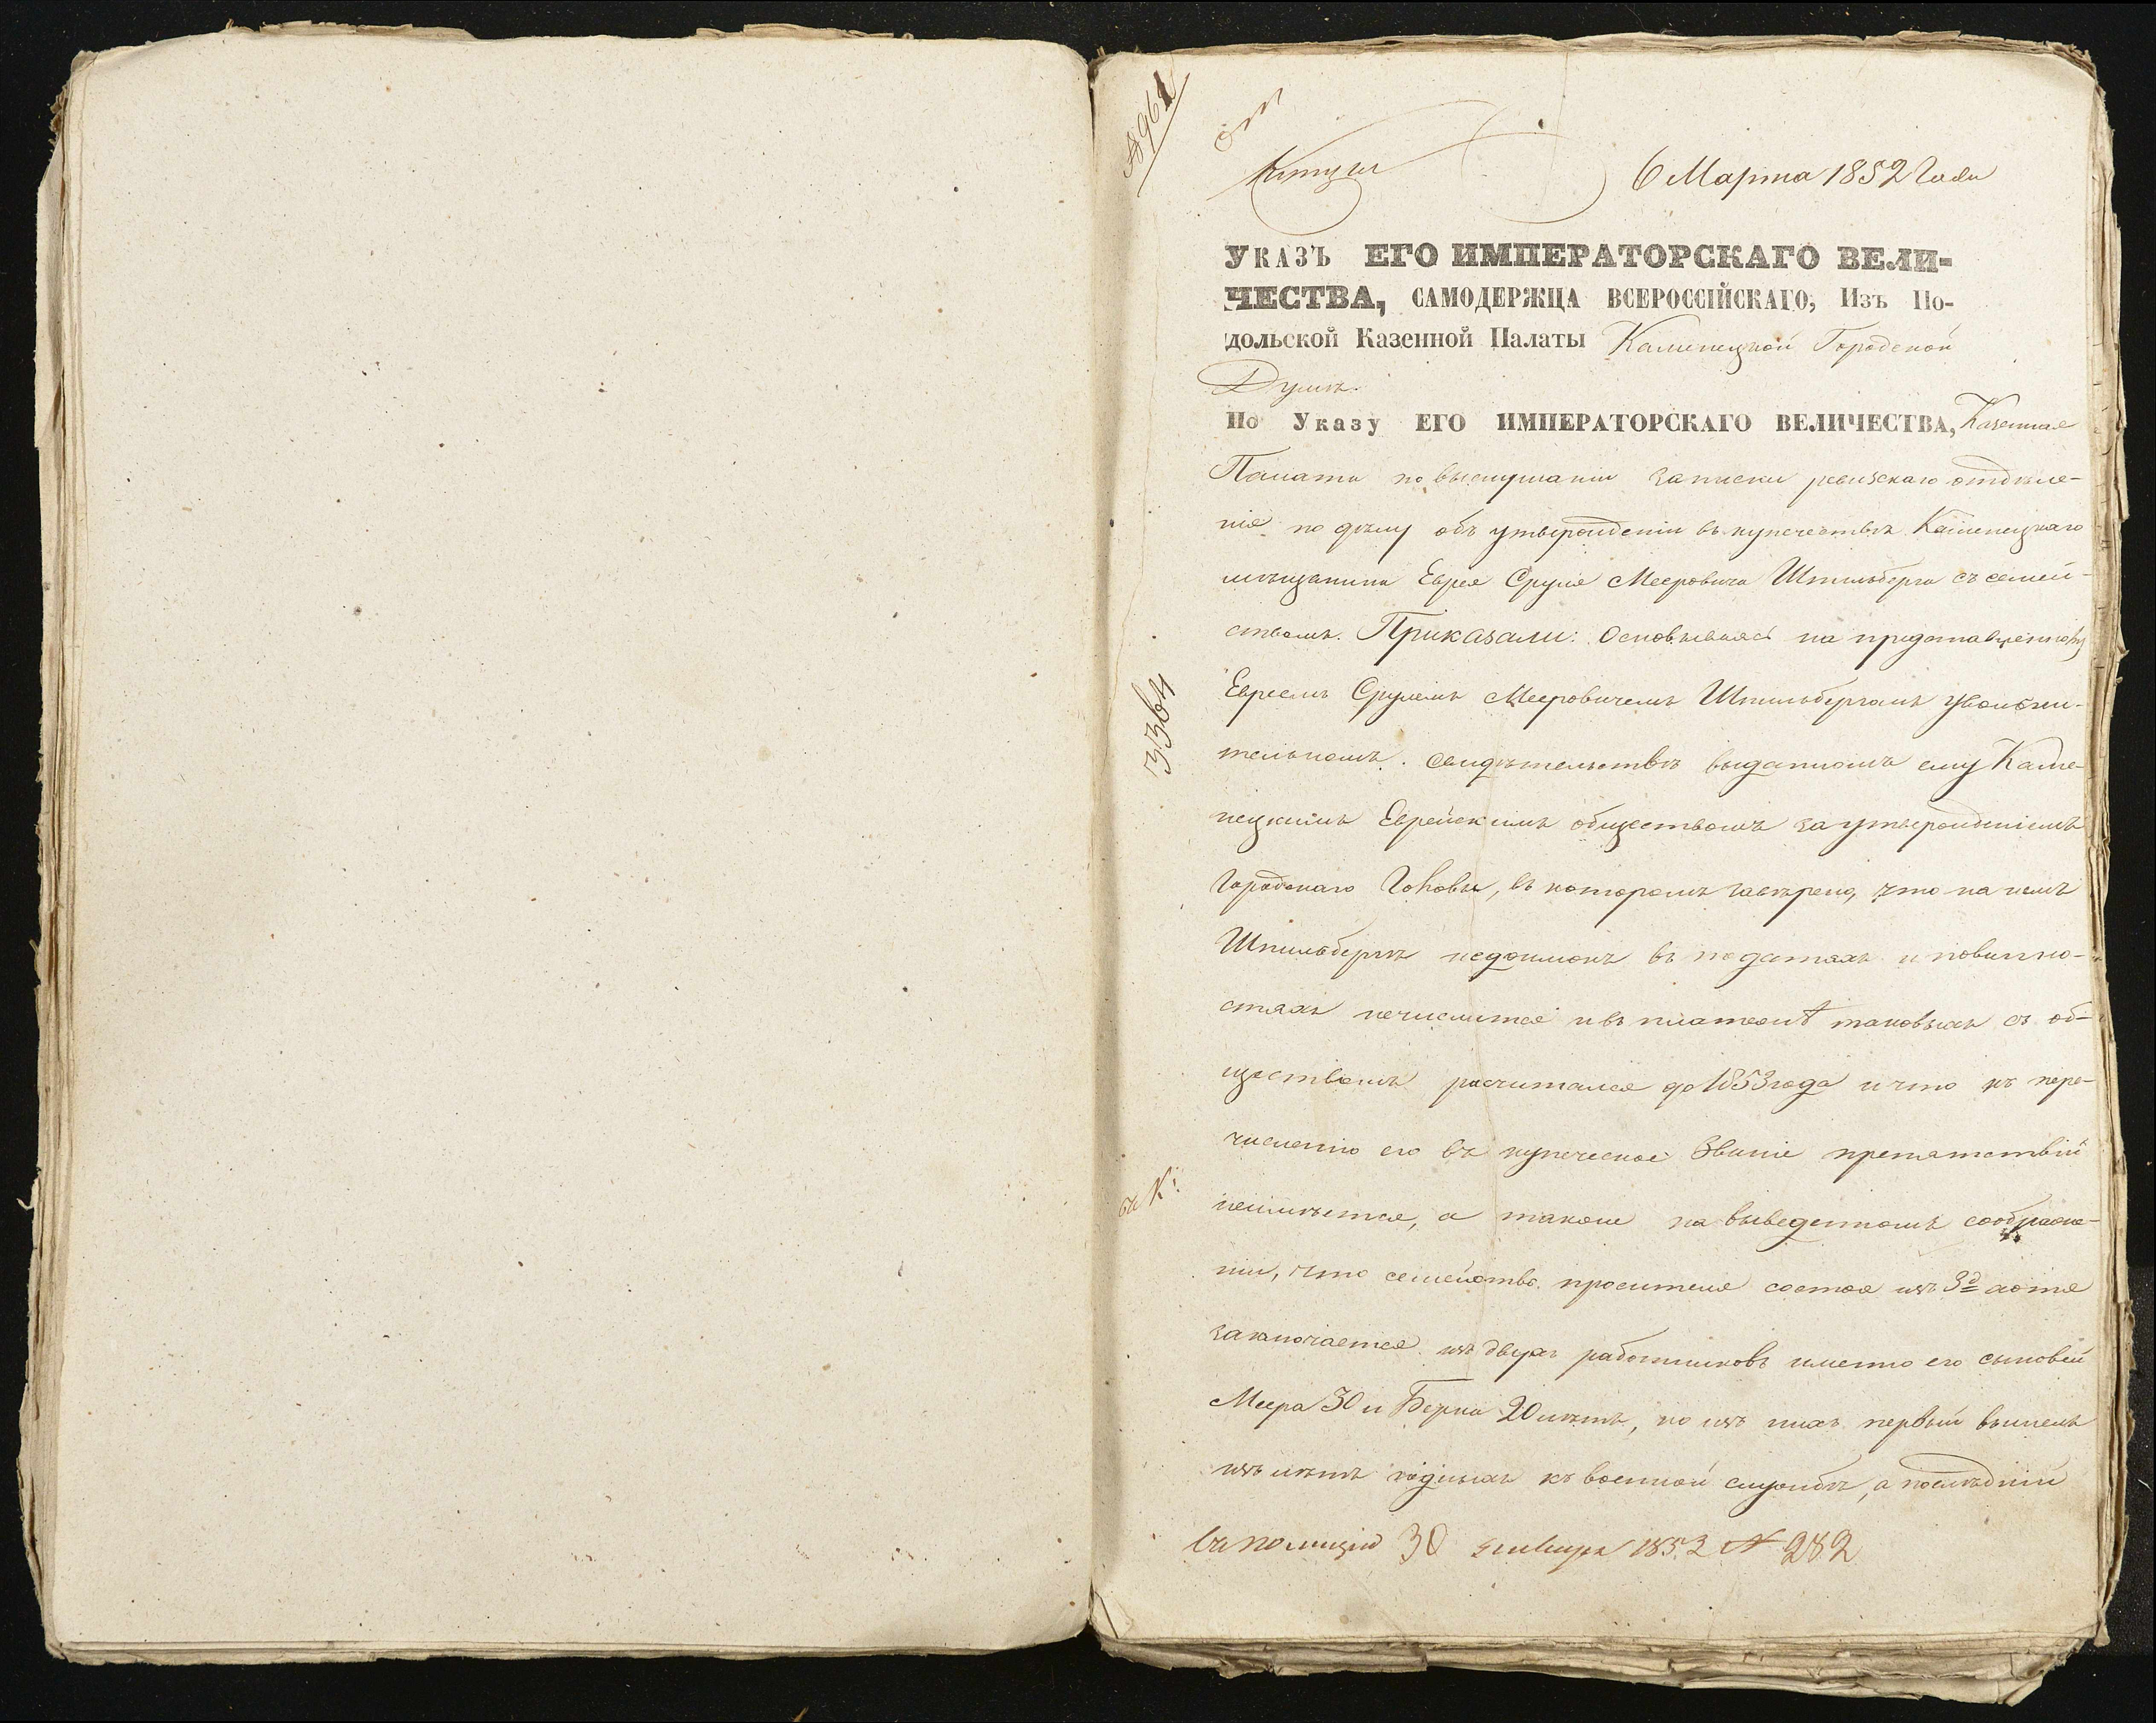 № 961
6 Марта 1852 Года
Указъ ЕГО ИМПЕРАТОРСКАГО ВЕЛИ-
ЧЕСТВА, САМОДЕРЖЦА ВСЕРОССІЙСКАГО, Изъ По-
дольской Казенной Палаты Каменецкой Городской
Думѣ.
По Указу ЕГО ИМПЕРАТОРСКАГО ВЕЛИЧЕСТВА, Казенная
Палата по выслушаніи записки ревизскаго отдѣле-
нія по дѣлу объ утвержденіи въ купечествѣ Каменецкаго
мѣщанина Еврея Сруля Мееровича Шпильберга съ семей-
ствомъ. Приказали: Основываясь на представленномъ
Евреемъ Срулемъ Мееровичемъ Шпильбергомъ увольни-
тельномъ свидѣтельствѣ выданномъ ему Каме-
нецкимъ Еврейскимъ обществомъ за утвержденіемъ
Городскаго Головы, въ которомъ завѣрено, что на немъ
Шпильбергѣ недоимокъ въ податяхъ и повинно-
стяхъ нечислится и въ платежѣ таковыхъ съ об-
ществомъ расчитался до 1853 года и что къ пере-
численію его въ купеческое званіе препятствій
неимѣется, а также на выведенномъ соображе-
ніи, что семейство просителя состоя изъ 3д
заключается изъ двухъ работниковъ именно его сыновей
Меера 30 и Берка 20 лѣтъ, но изъ нихъ первый вышелъ
изъ лѣтъ годныхъ къ военной службѣ, а послѣдній
3364
въ полицію 30 января 1853 № 282